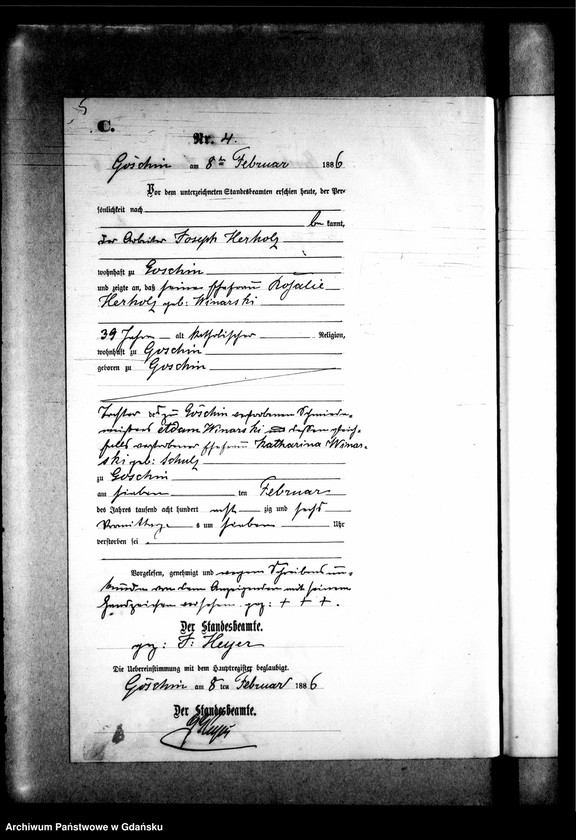 5
C.
Nr. 4.
Göschin am 8ten Februar 1886
Vor dem unterzeichneten Standesbeamten erschien heute, der Per=
sönlichkeit nach
be kannt,
der Arbeiter Joseph Herholz
wohnhaft zu Goschin
und zeigte an, daß seine Ehefrau Rosalie
Herholz geb: Winarski
39 Jahre alt katholischer Religion,
wohnhaft zu Goschin
geboren zu Goschin
Tochter des zu Göschin verstorbenen Schmiede-
meisters Adam Winarski dessen gleich-
falls verstorbener Ehefrau Katharina Winar-
ski geb: Schulz
zu Goschin
am sieben ten Februar
des Jahres tausend acht hundert acht zig und sechs
Vormittags um sieben Uhr
verstorben sei
Vorgelesen, genehmigt und wegen Schreibens un-
kunde von dem Anzeigenden mit seinem
Handzeichen versehen. gez: + + +.
Der Standesbeamte.
gez: F: Heyer
Die Uebereinstimmung mit dem Hauptregister beglaubigt.
Göschin am 8 ten Februar 1886
Der Standesbeamte.
Heyer
Archiwum Państwowe w Gdańsku